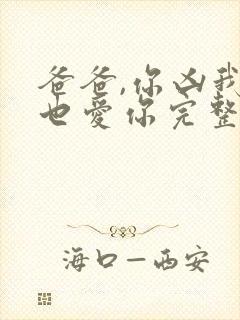 爸爸,你凶我
也爱你完整
海口—西安